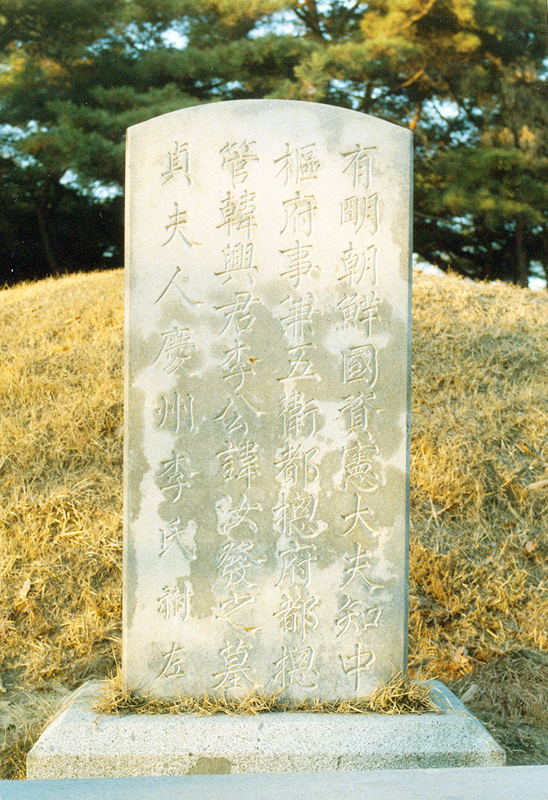 有明朝鮮國資憲大夫知中
樞府事兼五衛都摠府都摠
管韓興君李公諱汝發之墓
貞夫人慶州李氏祔左